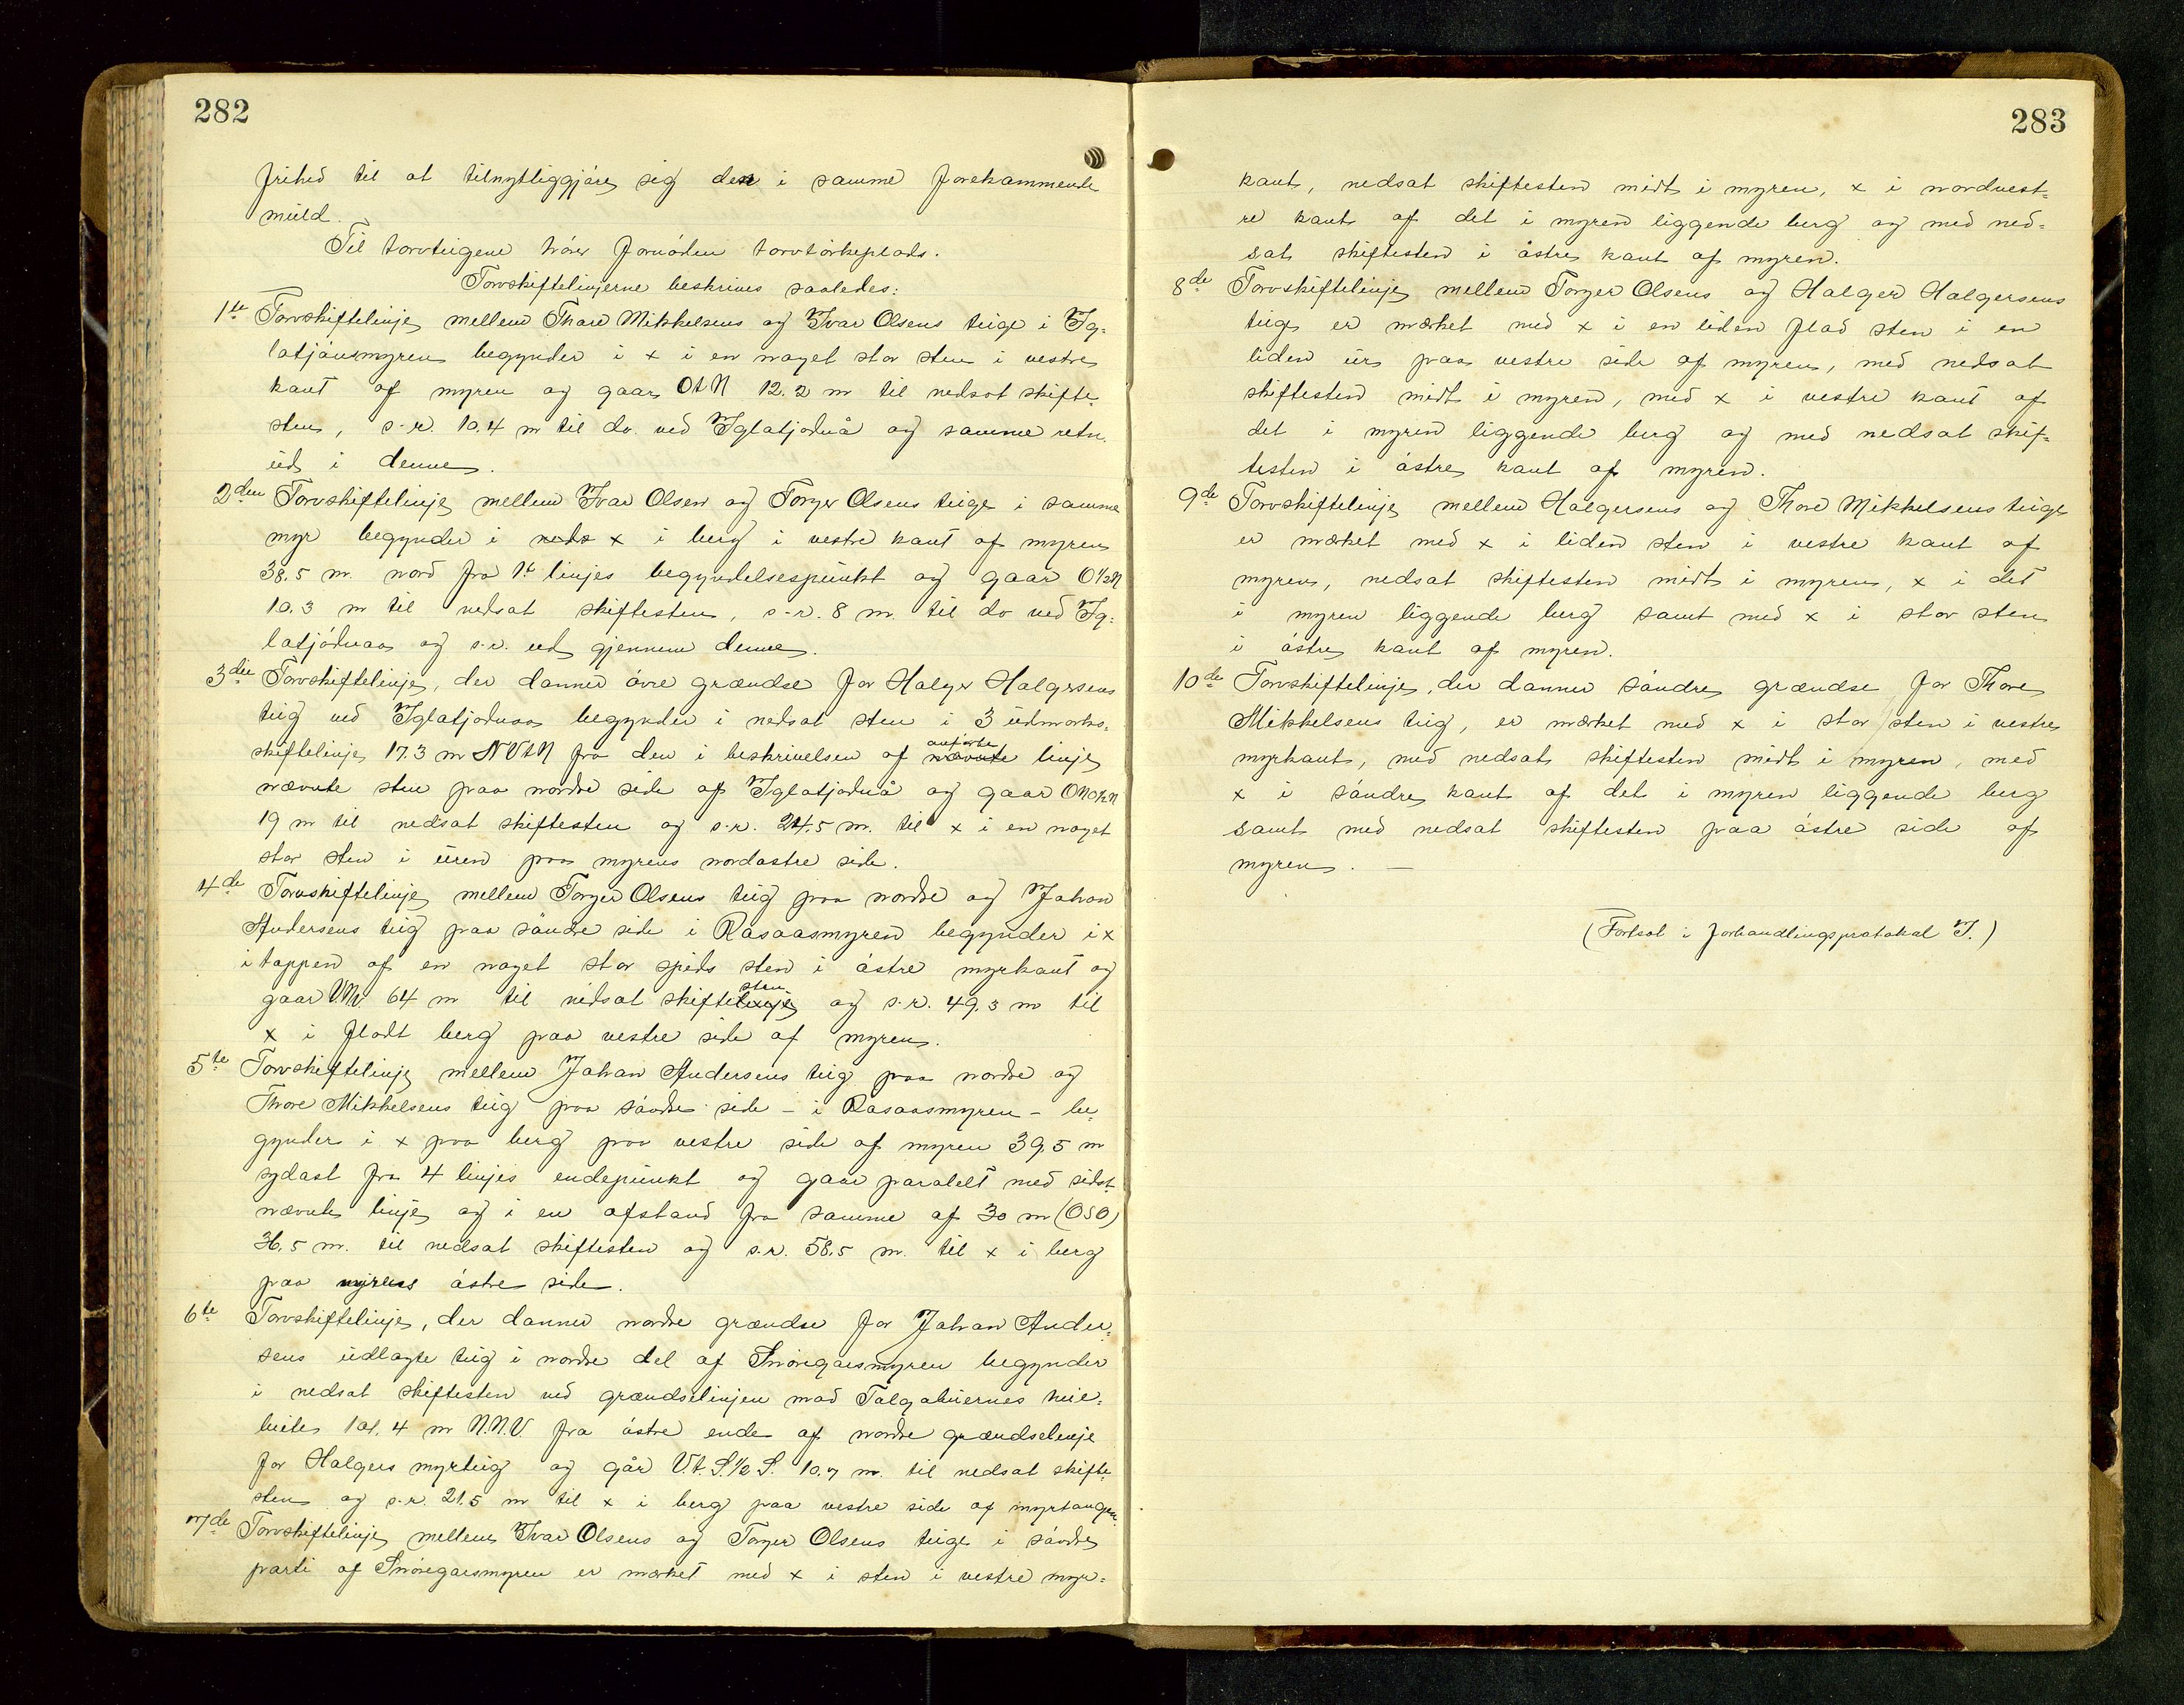 282
frihed til at tilnyttiggjöre sig den i samme forekommende
muld.
Til torvteigene hörer fornöden torvtörkeplads.
Torvskiftelinjerne beskrives saaledes:
1ste Torvskiftelinje mellem Thore Mikkelsens og Ivar Olsens teige i Ig-
latjönsmyren begynder i x i en noget stor sten i vestre
kant af myren og gaar OtN 12.2 m til nedsat skifte-
sten, s.r. 10.4 m til do. ved Iglatjødnå og samme retn.
ud i denne.
2den Torvskiftelinje mellem Ivar Olsen og Torger Olsens teige i samme
myr begynder i x i berg i vestre kant af myren
38.5 m. nord fra 1ste linjes begyndelsespunkt og gaar O½N
10.3 m til nedsat skiftesten, s.r. 8 m. til do ved Ig-
latjödnaa og s.r. ud gjennem denne.
3die Torvskiftelinje, der danner övre grændse for Holger Holgersens
teig ved Iglatjødnaa begynder i nedsat sten i 3 udmarks-
skiftelinje 17.3 m NVtN fra den i beskrivelsen af anförte linje
nævnte sten paa nordre side af Iglatjødnå og gaar
19 m til nedsat skiftesten og s.r. 24.5 m. til x i en noget
stor sten i uren paa myrens nordøstre side.
4de Torvskiftelinje mellem Torger Olsens teig paa nordre og Johan
Andersens teig paa söndre side i Rasaasmyren begynder i x
i toppen af en noget stor spids sten i östre myrkant og
gaar 64 m til nedsat skiftesten og s.r. 49.3 m til
x i fladt berg paa vestre side af myren.
5te Torvskiftelinje mellem Johan Andersens teig paa nordre og
Thore Mikkelsens teig paa söndre side - i Rasaasmyren - be-
gynder i x paa berg paa vestre side af myren 39,5 m
sydøst fra 4 linjes endepunkt og gaar paralelt med sidst
nævnte linje og i en afstand fra samme af 30 m (OSO)
36,5 m. til nedsat skiftesten og s.r. 58,5 m. til x i berg
paa myrens östre side.
6te Torvskiftelinje, der danner nordre grændse for Johan Ander-
sens udlagte teig i nordre del af Snöregaesmyren begynder
i nedsat skiftesten ved grændselinjen mod Talgabuernes
101.4 m N.N.V fra östre ende af nordre grændselinje
for Holgers myrteig og går V.t.S.½ S. 10.7 m. til nedsat skifte-
sten og s.r. 21.5 m til x i berg paa vestre side af myrtangen.
7de Torvskiftelinje mellem Ivar Olsens og Torger Olsens teige i söndre
parti af Snöregaesmyren er mærket med x i sten i vestre myr-
283
kant, nedsat skiftesten midt i myren, x i nordvest-
re kant af det i myren liggende berg og med ned-
sat skiftesten i östre kant af myren.
8de Torvskiftelinje mellem Torger Olsens og Holger Holgersens
teige er mærket med x i en liden flad sten i en
liden ur paa vestre side af myren, med nedsat
skiftesten midt i myren, med x i vestre kant af
det i myren liggende berg og med nedsat skif-
testen i östre kant af myren.
9de Torvskiftelinje mellem Holgersens og Thore Mikkelsens teige
er mærket med x i liden sten i vestre kant af
myren, nedsat skiftesten midt i myren, x i det
i myren liggende berg samt med x i stor sten
i östre kant af myren.
10de Torvskiftelinje, der danner söndre grændse for Thore
Mikkelsens teig, er mærket med x i stor sten i vestre
myrkant, med nedsat skiftesten midt i myren, med
x i söndre kant af det i myren liggende berg
samt med nedsat skiftesten paa östre side af
myren. —
(Fortsat i forhandlingsprotokol I.)